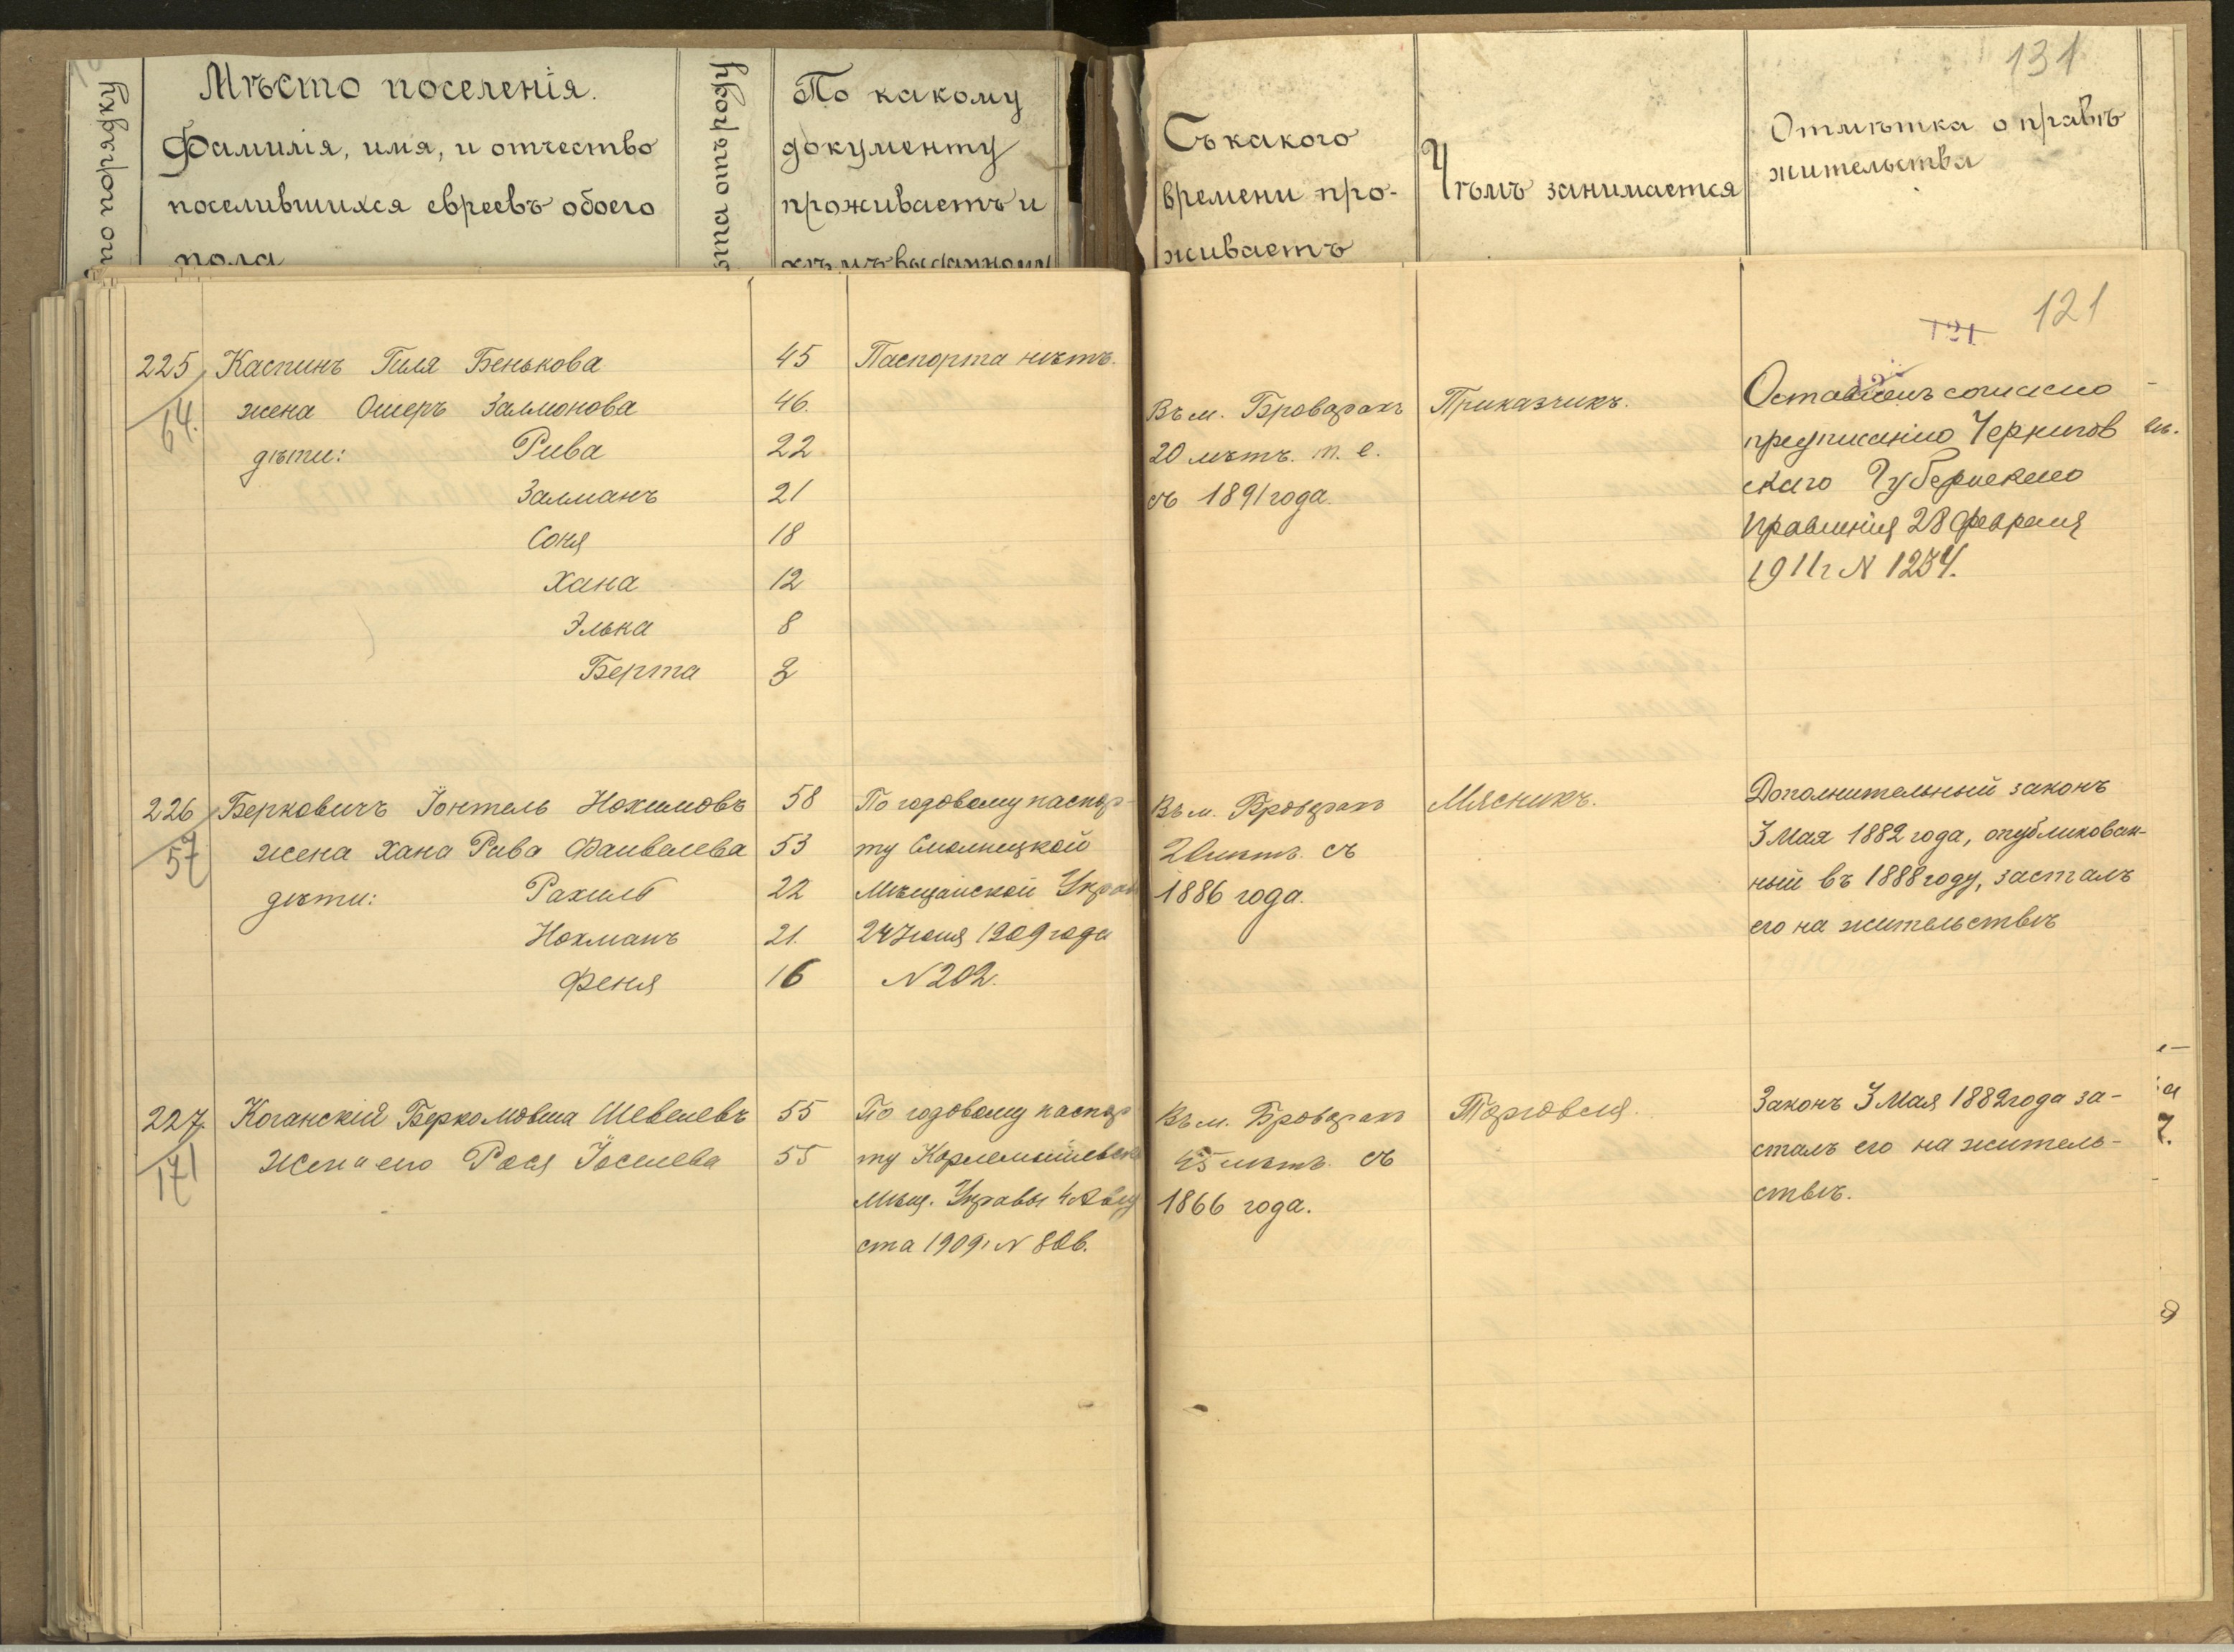 по порядку
Мѣсто поселенія.
Фамилія, имя, и отчество
поселившихся евреевъ обоего
пола
ѣта отъ роду
По какому
документу
проживаетъ и
кѣмъ выданному
Съ какого
времени про-
живаетъ
Чѣмъ занимается
131
Отмѣтка о правѣ
жительства
121
121
225
64.
Каспинъ Гиля Бенькова
45
Паспорта нѣтъ.
жена Ошеръ Залмонова
46.
дѣти: Рива
22
Залманъ
21
Соня
18
Хана
12
Элька
8
Берта
3
Въ м. Броварахъ
20 лѣтъ. т. е.
съ 1891 года.
Приказчикъ.
Оставленъ согласно
предписанію Чернигов
скаго Губернскаго
Правленія 28 февраля
1911 г N 1234.
226
57
Берковичъ Іонтель Нохимовъ
58
По годовому паспор-
жена Хана Рива Файвелева
53
ту Смолицкой
дѣти: Рахиль
22
Мѣщанской Управ
Нохманъ
21.
24 Іюля 1909 года
Феня
16
N 202.
Въ м. Броварахъ
лѣтъ. съ
1886 года.
Мясникъ.
Дополнительный законъ
3 Мая 1882 года, опубликован-
ный въ 1888 году, засталъ
его на жительствѣ
227.
171
Коганскій Беркомовша Шевелевъ
55
По годовому паспор
Жена его Рося Іосиева
55
ту
Мѣщ. Управы 4 Авгу
ста 1909 г N 806.
Въ м. Броварахъ
45 лѣтъ. съ
1866 года.
Торговля.
Законъ 3 Мая 1882 года за-
сталъ его на житель-
ствѣ.